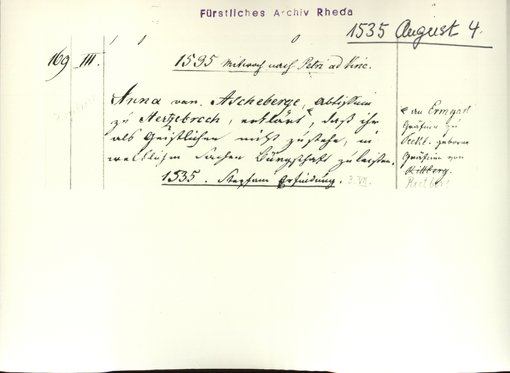 Fürstliches Archiv Rheda
1535 August 4.
169 III.
1535 Mittwoch nach Petri ad Vinc.
Anna von Ascheberge, Abtissin
zu Herzebroch, erklärt, daß ihr
als Geistlichen nicht zustehe, in
weltlichen Sachen Bürgschaft zu leisten.
1535. Stephani Erfindung. 3. VII.
an Ermgard
Gräfin zu
Teckl. geborne
Gräfinn von
Rittberg.